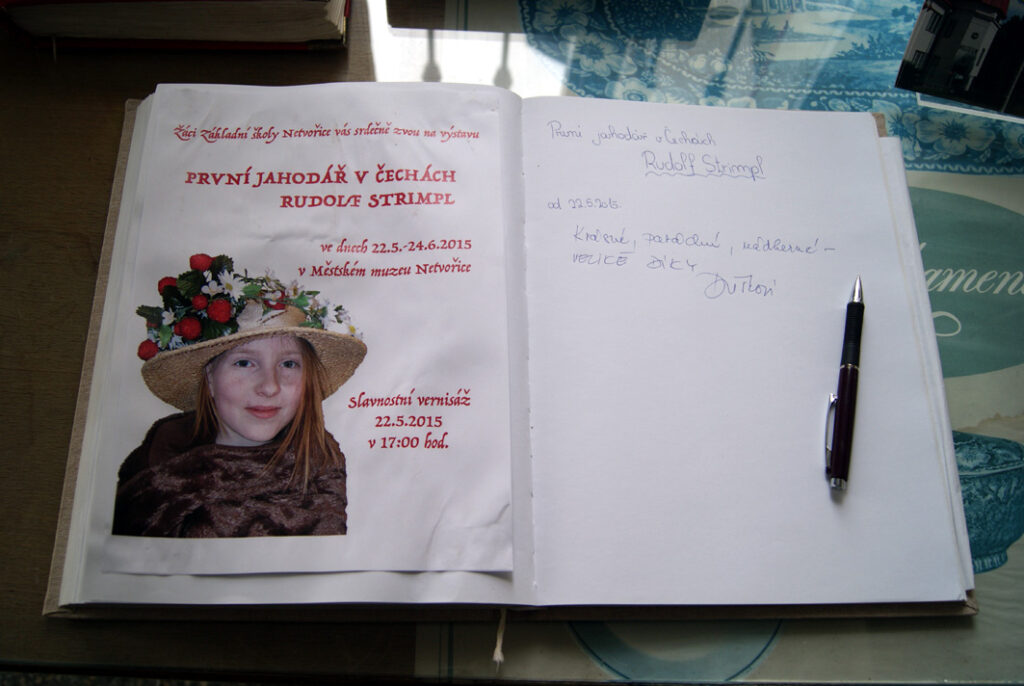 Žáci Základní školy Netvořice vás srdečně zvou na výstavu
PRVNÍ JAHODÁŘ V ČECHÁCH
RUDOLF STRIMPL
ve dnech 22.5.-24.6.2015
v Městském muzeu Netvořice
Slavnostní vernisáž
22.5.2015
v 17:00 hod.
První jahodář v Čechách
Rudolf Strimpl
od 22.5.2015.
Krásné, parádní, nádherné –
VELIKÉ DÍKY